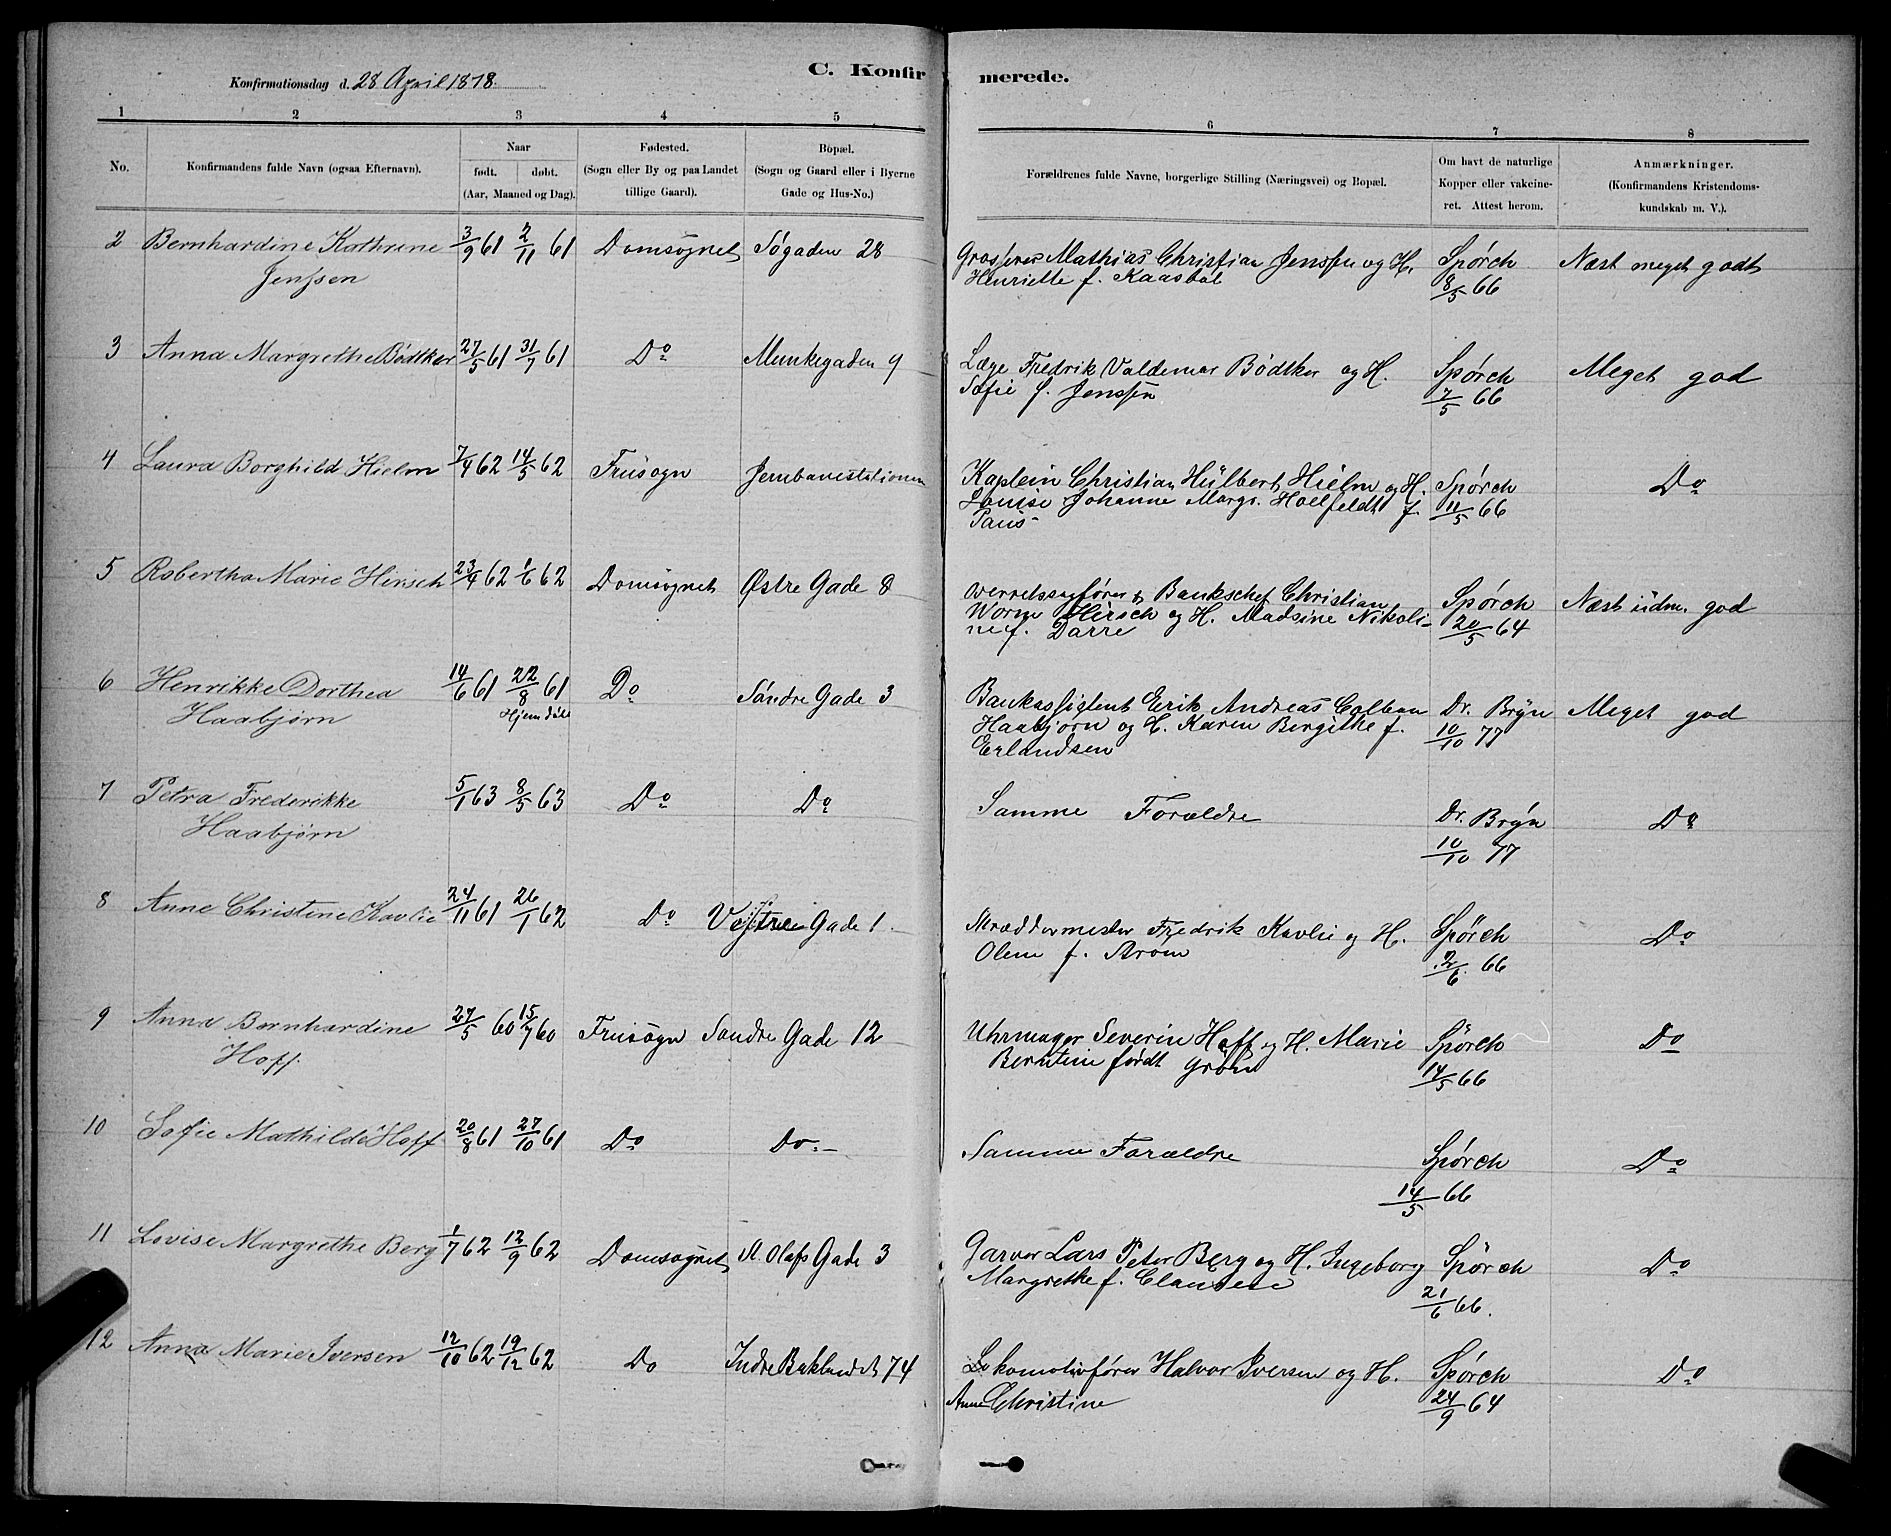 C. Konfirmerede.
Konfirmationsdag d. 28 April 1878.
1 2 3 4 5 6 7 8
No. Konfirmandens fulde Navn (ogsaa Efternavn). Naar født. døbt. (Aar, Maaned og Dag). Fødested. (Sogn eller By og paa Landet tillige Gaard). Bopæl. (Sogn og Gaard eller i Byerne Gade og Hus-No.) Forældrenes fulde Navne, borgerlige Stilling (Næringsvei) og Bopæl. Om havt de naturlige Kopper eller vakcineret. Attest herom. Anmærkninger. (Konfirmandens Kristendomskundskab m. V.).
2 Bernhardine Kathrine 3/9 61 2/11 61 Domsognet Søgaden 28 Mathias Christian Jenssen og H. Spørch Næst meget godt
Jenssen Henriette f. Kaasbøl 8/5 66
3 Anna Margrethe Bødtker 27/5 61 31/7 61 Do Munkegaden 9 Læge Fredrik Valdemar Bødtker og H. Spørch Meget god
Sofie f. Jenssen 7/5 66
4 Laura Borghild Hielm 7/4 62 14/5 62 Frusogn Jernbanestationen Kaptein Christian Hülbert Hielm og H. Spørch Do
Louise Johanne Margr. Hoelfeldt f. 11/5 66
Paus
5 Robertha Marie Hirsch 23/4 62 1/6 62 Domsognet Østre Gade 8 Overretssagfører & Bankschef Christian Spørch Næst udm. god
Worm Hirsch og H. Madsine Nikoli- 20/5 64
ne f. Darre
6 Henrikke Dorthea 14/6 61 22/8 61 Do Søndre Gade 3 Bankassistent Erik Andreas Colban Dr. Bryn Meget god
Haabjørn Hjemdøbt Haabjørn og H. Karen Bergithe f. 10/10 77
Erlandsen
7 Petra Frederikke 5/1 63 8/5 63 Do Do Samme Forældre Dr. Bryn Do
Haabjørn 10/10 77
8 Anne Christine Kavlie 24/11 61 26/1 62 Do Vestre Gade 1. Skræddermester Fredrik Kavlie og H. Spørch Do
Olene f. Strøm 2/6 66
9 Anna Bernhardine 27/5 60 15/7 60 Frusogn Søndre Gade 12 Uhrmager Severin Hoff og H. Marie Spørch Do
Hoff Berntine født Grøn 14/5 66
10 Sofie Mathilde Hoff 20/8 61 27/10 61 Do Do Samme Forældre Spørch Do
14/5 66
11 Lovise Margrethe Berg 1/7 62 12/9 62 Domsognet St. Olafs Gade 3 Garver Lars Peter Berg og H. Ingeborg Spørch Do
Margrethe f. Clausen 21/6 66.
12 Anna Marie Iversen 12/10 62 19/12 62 Do Indre Baklandet 74 Lokomotivfører Halvor Iversen og H. Spørch Do
Anne Christine 24/9 64